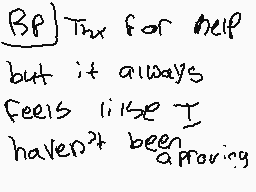 BP] Thx for help
but it always
feels like I
haven't been
approving